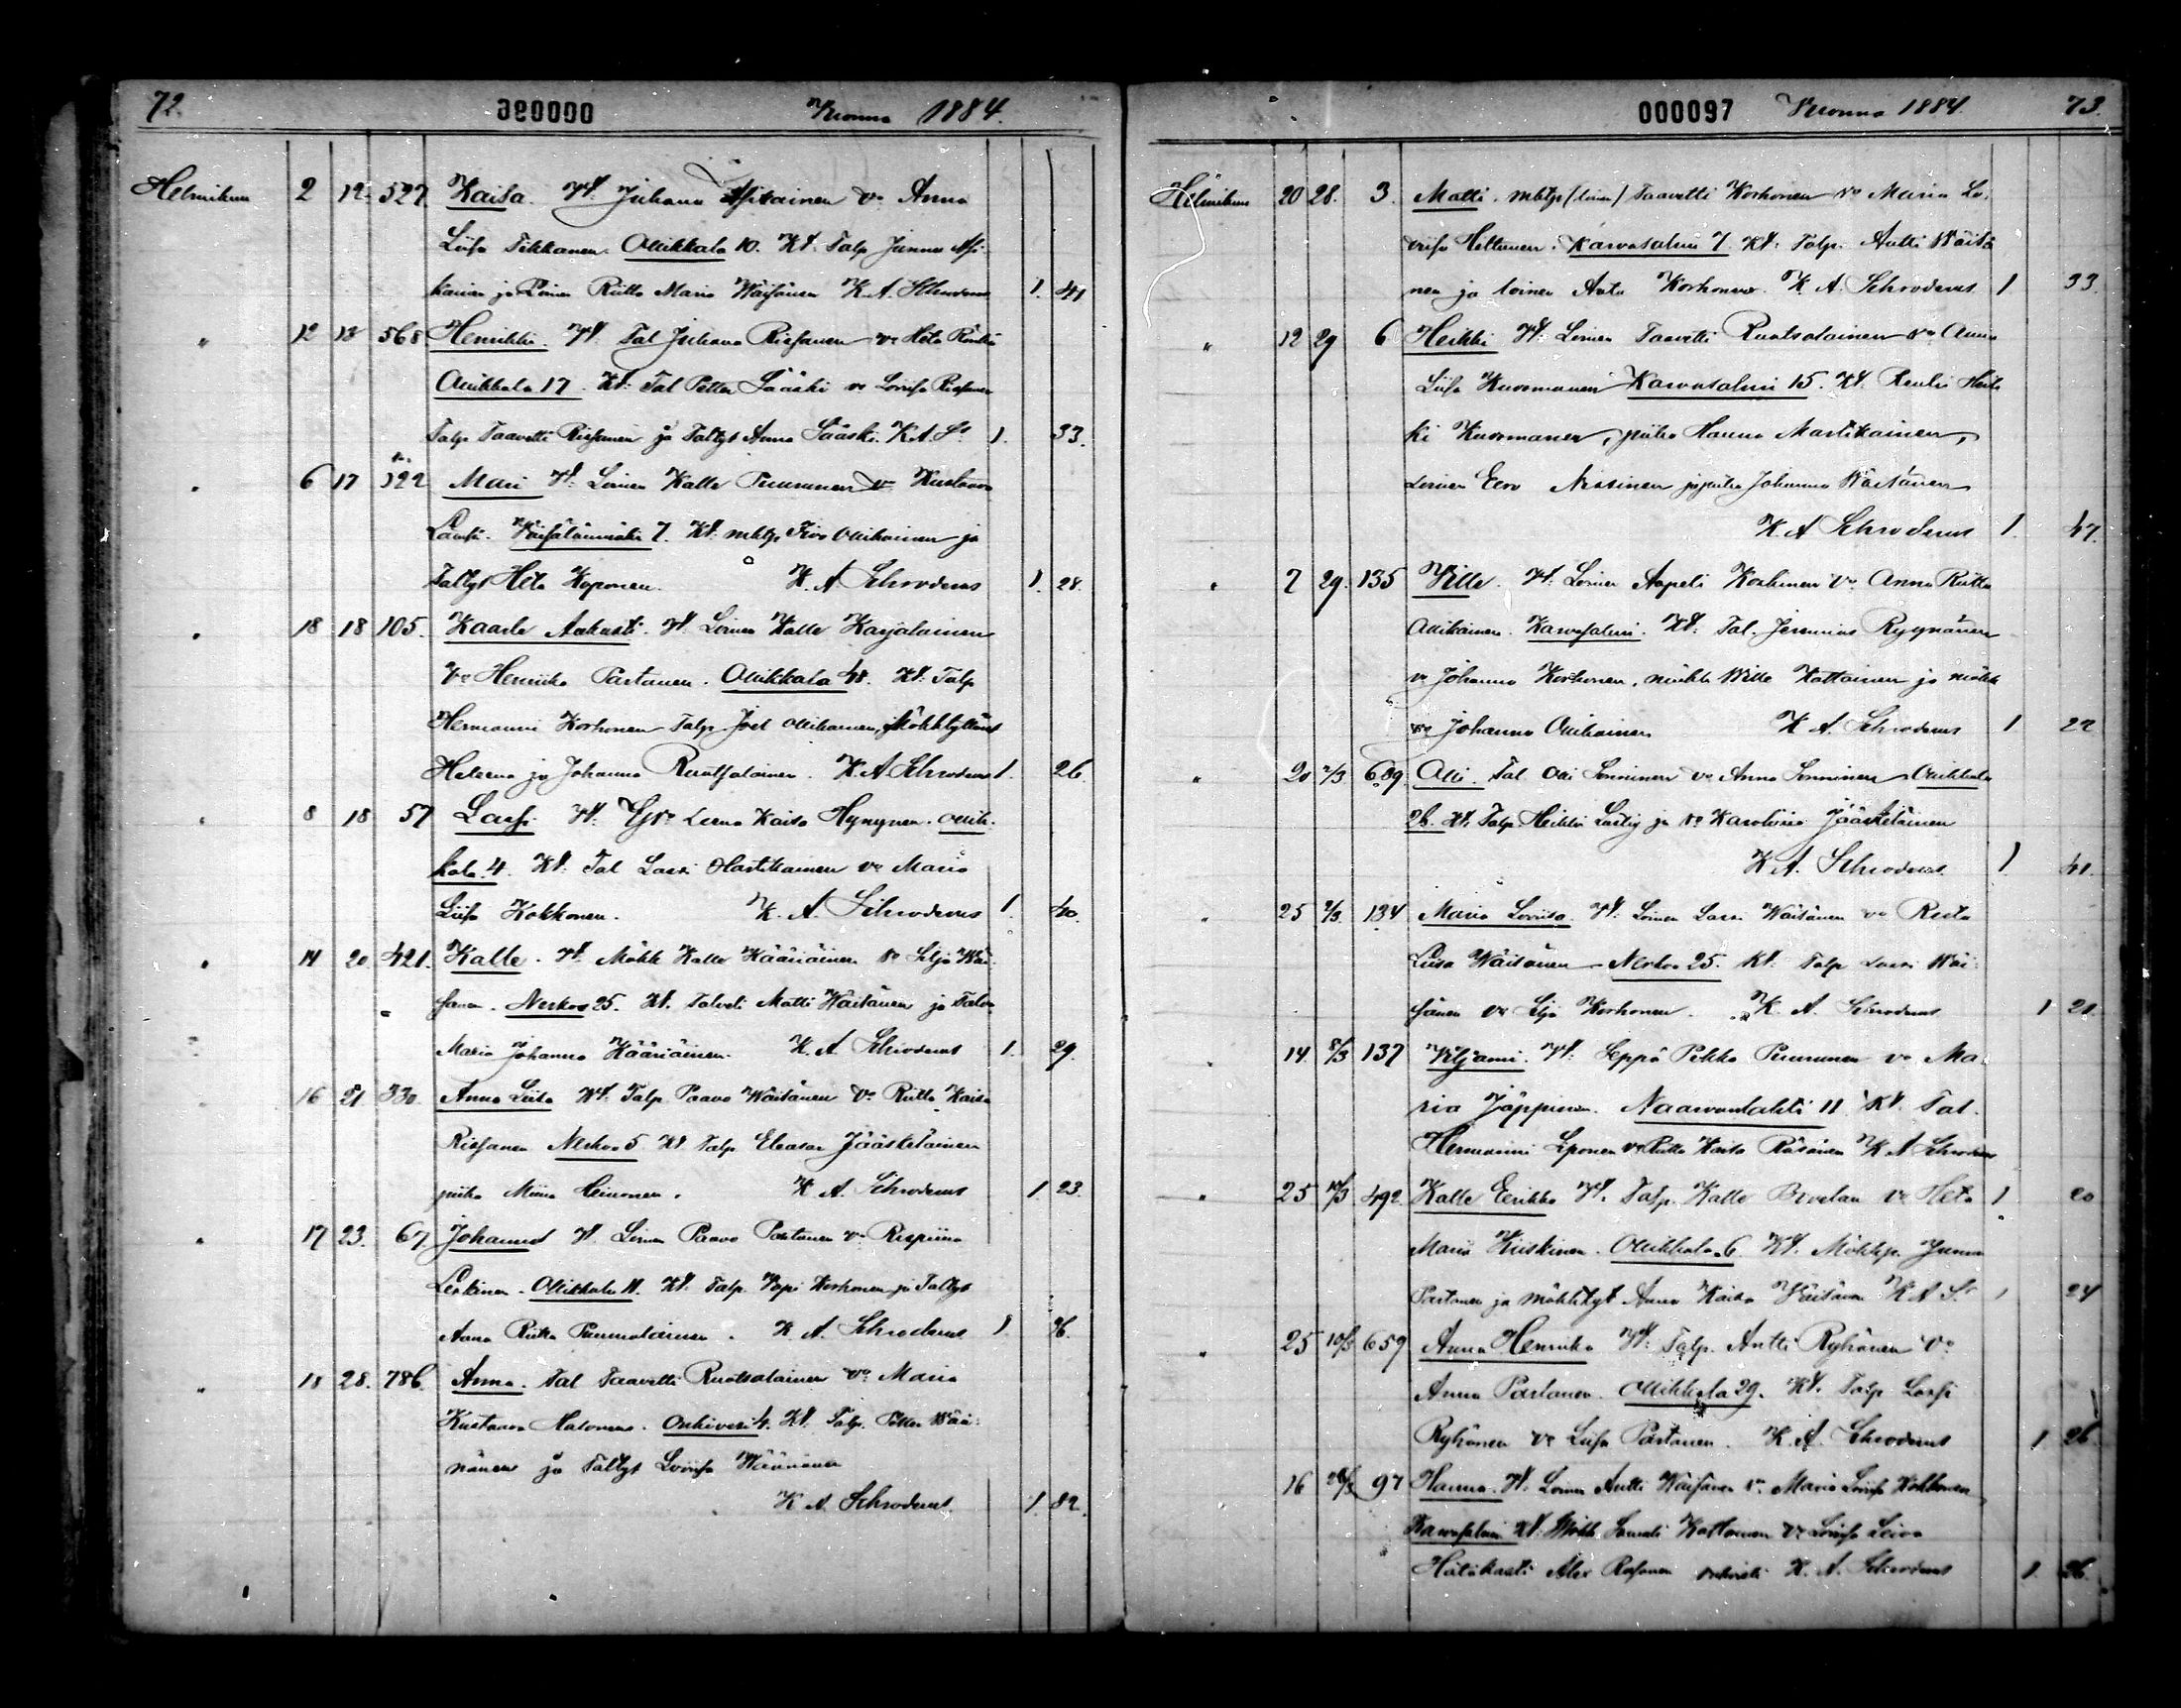 72. 000096 Vuonna 1884.
Helmikuu 2 12 527 Kaisa. Vt. Juhana Asikainen Vo Anna
Liisa Tikkanen. Ollikkala 10. Kt. Talp Junnu Asi-
kainen ja Loinen Riitta Maria Wäisänen K. A. Schroderus 1. 41
" 12 13 568 Henrikki. Vt. Tal Juhana Riessanen Vo Heta
Ollikkala 17. Kt. Tal Petter Sääski vo Lovisa Rissanen
Talp Taavetti Rissanen ja Taltyt Anna Sääski. K. A. Ss 1. 33.
" 6 17 522 Mari Vt. Loinen Kalle Puurunen Vo Kustaava
Lämsä. Väisälänmäki 7. Kt. mktp Iivo Ollikainen ja
Taltyt Heta Koponen. K. A Schroderus 1. 28.
" 18 18 105. Kaarle Aukusti. Vt. Loinen Kalle Karjalainen
Vo Henriika Partanen. Ollikkala 48. Kt. Talp
Hermanni Korhonen Talp. Joel Ollikainen, Mökktyttäret
Helena ja Johanna Ruutsalainen. K. A Schroderus 1. 26.
" 8 18 57 Lassi Vt. Leena Kaisa Hynynen. Ollik-
kala. 4. Kt. Tal Lassi Hartikainen vo Maria
Liisa Kokkonen. K. A. Schroderus 1. 40.
" 14 20 421. Kalle. Vt. Mökk Kalle Kääriäinen vo Silja Wäi-
sänen. Nerkoo 25. Kt. Talveli Matti Wäisänen ja Talvo
Maria Johanna Kääriäinen. K. A. Schroderus 1. 29.
" 16 21 330. Anna Liisa Vt. Talp Paavo Wäisänen Vo Riitta Kaisa
Rissanen Nerkoo 5. Kt Talp Eleasar Jääskeläinen
piika Miina Heinonen. K. A. Schroderus 1. 23.
" 17 23. 67 Johannes Vt. Loinen Paavo Partanen vo Krispiina
Leskinen. Ollikkala 11. Kt. Talp. Korhonen ja Taltyt
Anna Riitta Puumalainen. K. A. Schroderus 1. 26.
" 18 28. 786. Anna. Tal Taavetti Ruotsalainen vo Maria
Kustaava Halonen. Onkivesi 4. Kt. Talp. Petter Wää-
nänen ja Taltyt Loviisa Wäänänen
K. A. Schroderus 1. 32.
000097 Vuonna 1884. 73.
Helmikuu 20 28. 3. Matti. mktp (loinen) Taavetti Korhonen vo Maria Lo-
viisa Hiltunen. Karvasalmi 7. Kt. Talp. Antti Wäisä
nen ja loinen Antu Korhonen. K. A. Schroderus 1 33.
" 12 29 6 Heikki Vt. Loinen Taavetti Ruotsalainen vo Anna
Liisa Kuosmanen Karvasalmi 15. Kt. Renki Heik
ki Kuosmanen, piika Hanna Martikainen,
Loinen Eero Nissinen ja piika Johanna Wäisänen
K. A Schroderus 1. 47.
" 7 29. 135 Ville. Vt. Loinen Aapeli Korhonen Vo Anna Riitta
Ollikainen. Karvasalmi. Kt. Tal. Jeremias Ryynänen
vo Johanna Korhonen, mökk Wille Kattainen ja mökk
vo Johanna Ollikainen K. A. Schroderus 1 22
" 20 2/3 689. Olli. Tal Olli Sonninen Vo Anna Sonninen Ollikkala
26. Kt. Talp. Heikki Lustig ja vo Karoliina Jääskeläinen
K. A. Schroderus 1. 41.
" 25 2/3 134 Maria Loviisa. Vt. Loinen Lassi Wäisänen vo Reeta
Liisa Wäisänen Nerkoo 25. Kt. Talp Lassi Wäi-
sänen vo Silja Korhonen. K. A. Schroderus 1 21.
" 14. 8/3 137 Viljami. Vt. Seppä Pekka Puurunen vo Ma-
ria Jäppinen. Naarvanlahti 11 Kt. Tal.
Hermanni Eponen Vo Riitta Kaisa Räsänen K. A Schroderus
" 25 10/3 492. Kalle Eerikki Vt. Talp. Kalle Bovelan Vo Heta 1 20
Maria Kiiskinen. Ollikkala. 6 Kt. Mökkp. Junnu
Partanen ja Mökktyt Anna Kaisa Wäisänen K A Ss 1 24
" 25 10/3 659 Anna Henriika Vt. Talp. Antti Ryhänen Vo
Anna Partanen. Ollikkala 29. Kt. Talp Lassi
Ryhänen vo Liisa Partanen. K. A. Schroderus 1 26
16 97 Hanna. Vt. Loinen Antti Wäisänen vo Maria Loviisa Kokkonen
Karvasalmi Kt. Mökk Samuli Kattainen Vo Loviisa
Hätäkasti Alex Rissanen K. A. Schroderus 1. 26.